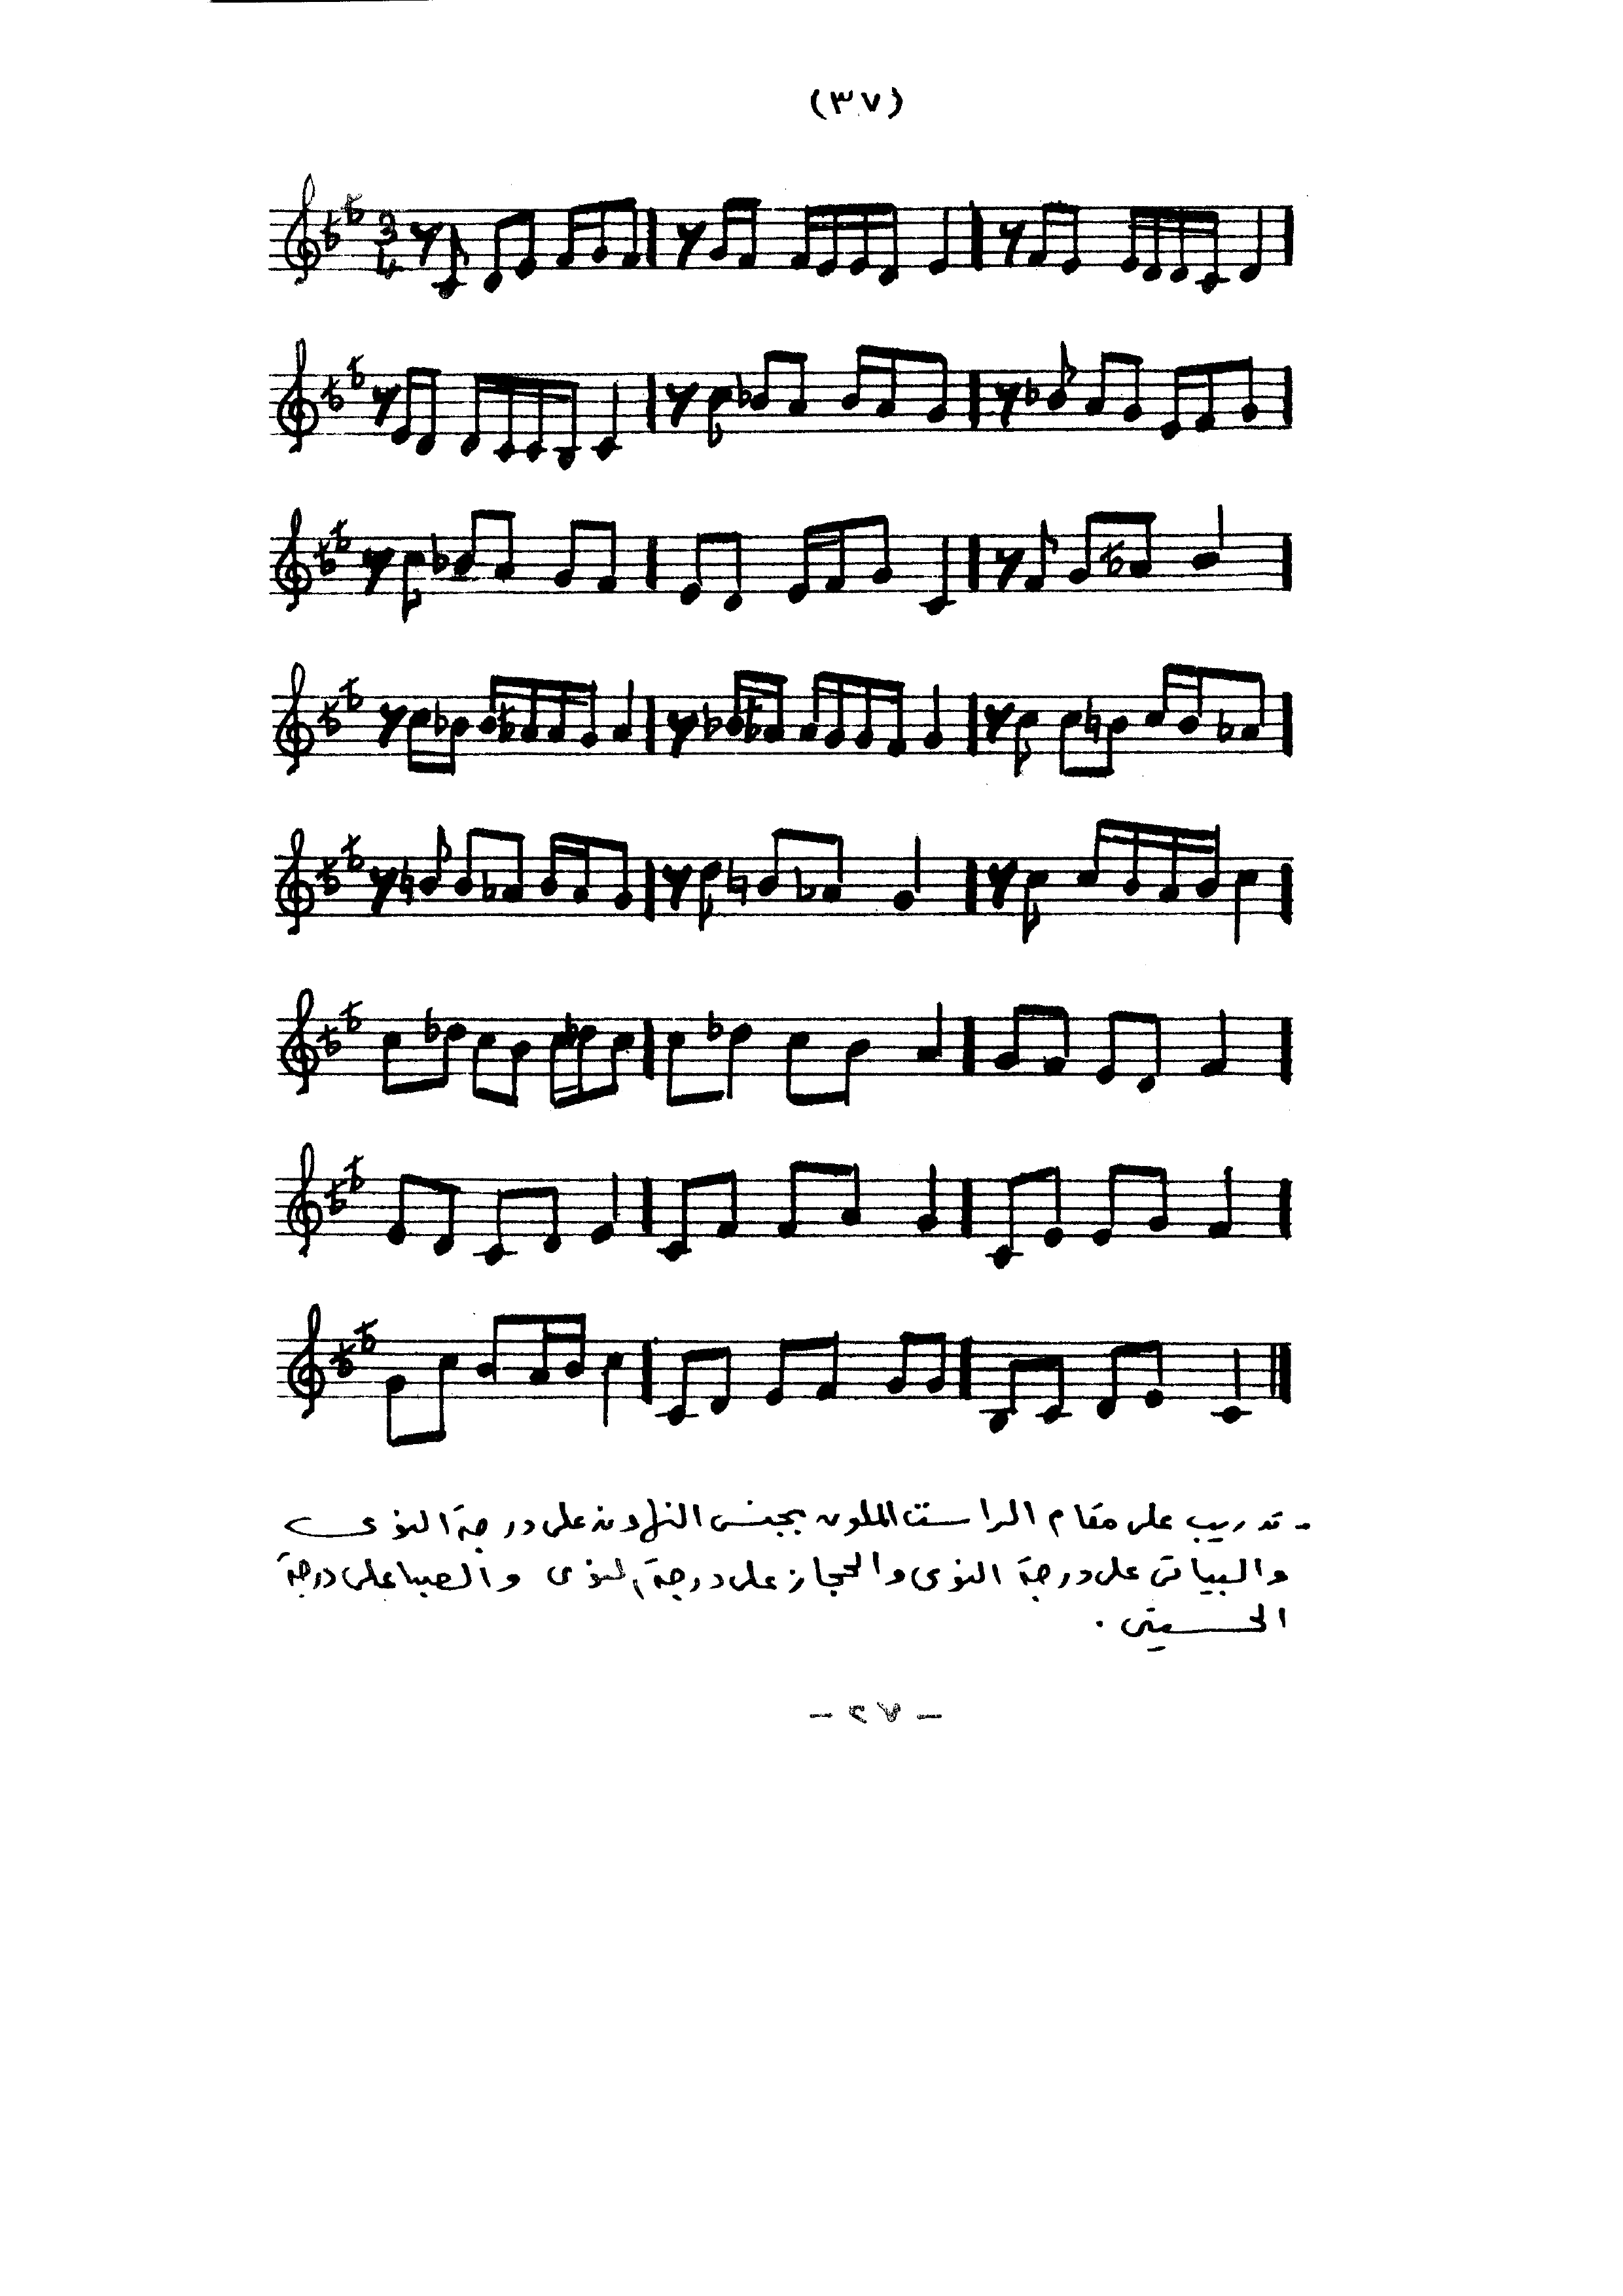 (٣٧)
3
4
- تدريب على مقام الراست الملون بجنس النهاوند على درجة النوى
والبياتى على درجة النوى والحجاز على درجة النوى والصبا على درجة
الحسينى .
- ٢٧ -